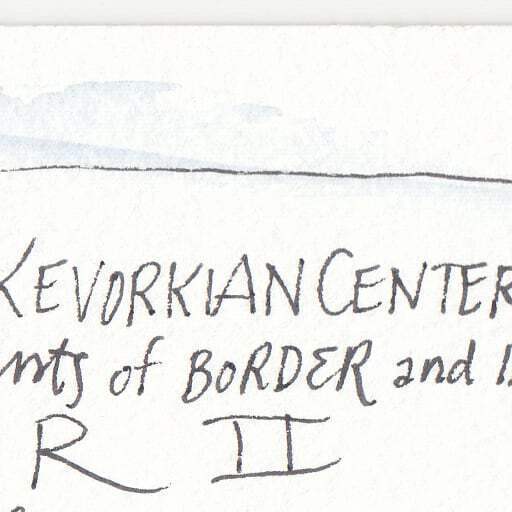 KEVORKIAN CENTER
nts of BORDER and
R II